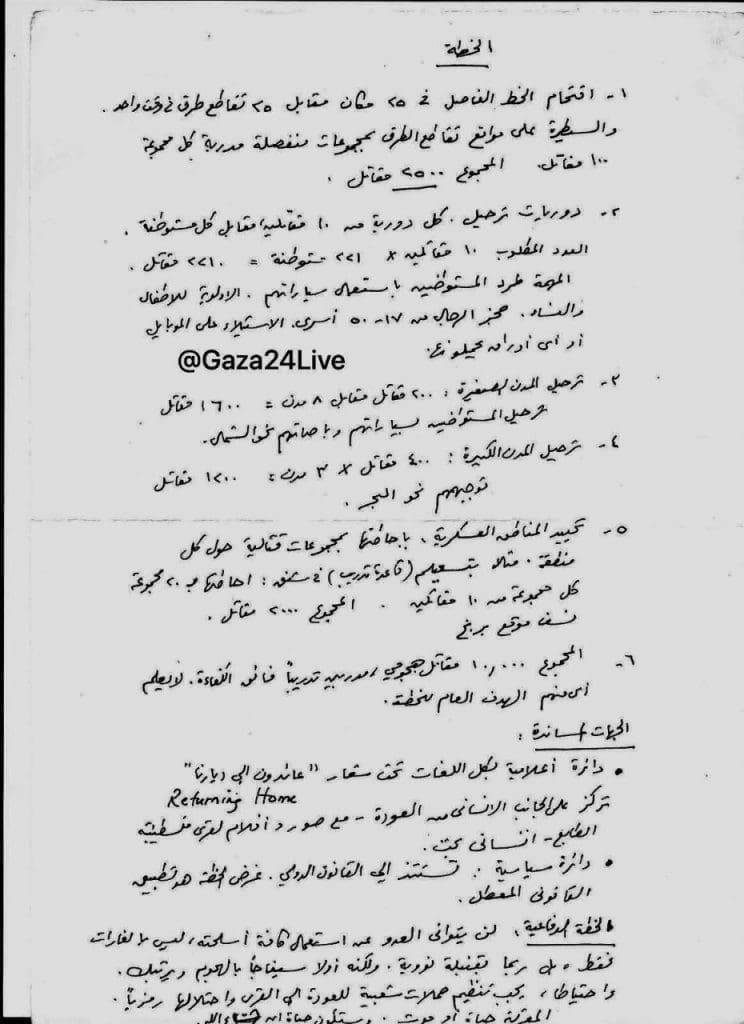 الخطة
١- اقتحام الخط الفاصل في ٢٥ مكان مقابل ٢٥ تقاطع طرق في وقت واحد.
والسيطرة على مواقع تقاطع الطرق بمجموعات منفصلة مدربة كل مجموعة
١٠٠ مقاتل. المجموع ٢٥٠٠ مقاتل.
٢- دوريات ترحيل. كل دورية من ١٠ مقاتلين، مقابل كل مستوطنة.
العدد المطلوب ١٠ مقاتلين × ٢٢١ مستوطنة = ٢٢١٠ مقاتل.
المهمة طرد المستوطنين باستعمال سياراتهم. الاولوية للاطفال
والنساء. حجز الرجال من ١٧-٥٠ أسرى. الاستيلاء على الموبايل
أو أى أوراق يحملونها.
@Gaza24Live
٣- ترحيل المدن الصغيرة: ٢٠٠ مقاتل مقابل ٨ مدن = ١٦٠٠ مقاتل
ترحيل المستوطنين بسياراتهم وباصاتهم نحو الشمال.
٤- ترحيل المدن الكبيرة: ٤٠٠ مقاتل × ٣ مدن = ١٢٠٠ مقاتل
توجيههم نحو البحر.
٥- تحييد المناطق العسكرية، بإحاطتها بمجموعات قتالية حول كل
منطقة. مثلا (قاعدة تدريب) في : احاطتها بـ ٢٠ مجموعة
كل مجموعة من ١٠ مقاتلين. المجموع ٢٠٠٠ مقاتل.
نسف موقع
٦- المجموع ١٠,٠٠٠ مقاتل هجومي، مدربين تدريباً فائق الكفاءة. لا يعلم
أى منهم الهدف العام للخطة.
الجهات المساندة:
• دائرة أعلامية بكل اللغات تحت شعار "عائدون الى ديارنا"
Returning Home
تركز على الجانب الانسانى من العودة - مع صور وأفلام لقرى فلسطينية
الطابع - انسانى بحت.
• دائرة سياسية: تستند إلى القانون الدولي. غرض الخطة هو تطبيق
القانون المعطل.
الخطة الدفاعية: لن يتوانى العدو عن استعمال كافة أسلحته، ليس بالغارات
فقط، بل ربما بقنبلة نووية. ولكنه أولا سيفاجأ بالهجوم ويرتبك.
واحتياطا، يجب تنظيم حملات شعبية للعودة الى القرى واحتلالها رمزياً.
المعركة حياة أو موت. وستكون حياة ان شاء الله